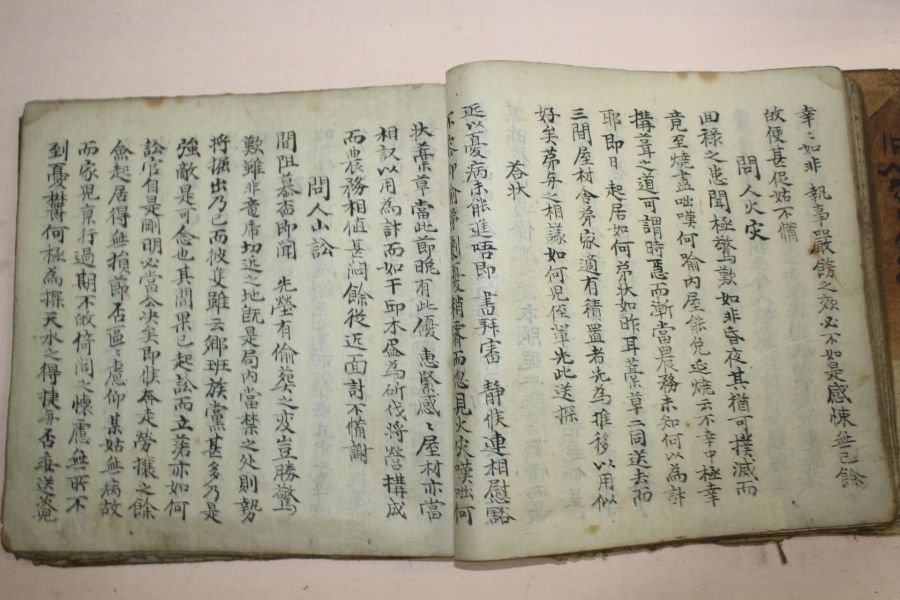 幸〻如非 執事嚴飭之效必不如是感悚無已餘
故便甚促姑不備
問人火灾
回祿之患聞極驚歎如非昏夜其猶可撲滅而
竟至燒盡咄嘆何喩內屋能免延燒云不幸中極幸
構葺之道可謂時急而漸當農務未知何以爲計
耶即日 起居如何弟狀如昨耳藁草二同送去而
三間屋材舍弟家適有積置者先爲推移以用似
好矣弟無之相議如何兒侄輩先此送探
答狀
延以憂病未能進唔即 書拜審 靜候連相慰豁
狀藁章當此節晩有此優 惠緊感〻屋材亦當
相議以用爲計而如干邱木盡爲斫伐將營構成
而農務相値甚悶餘從近面討不備謝
問人山訟
間阻慕菀即聞 先塋有偸葬之變豈勝驚
歎雖非竜虎切近之地旣是局內當禁之處則勢
將掘出乃已而彼隻雖云鄕班族黨甚多乃是
強敵是可念也其間果已起訟而立落亦如何
訟官自是剛明必當公決矣即候奔走勞攘之餘
僉起居得無損節否區〻慮仰某姑無病故
而家兒京行過期不故倚閭之懷慮無所不
到憂欝何極爲探天水之得捷與否專送